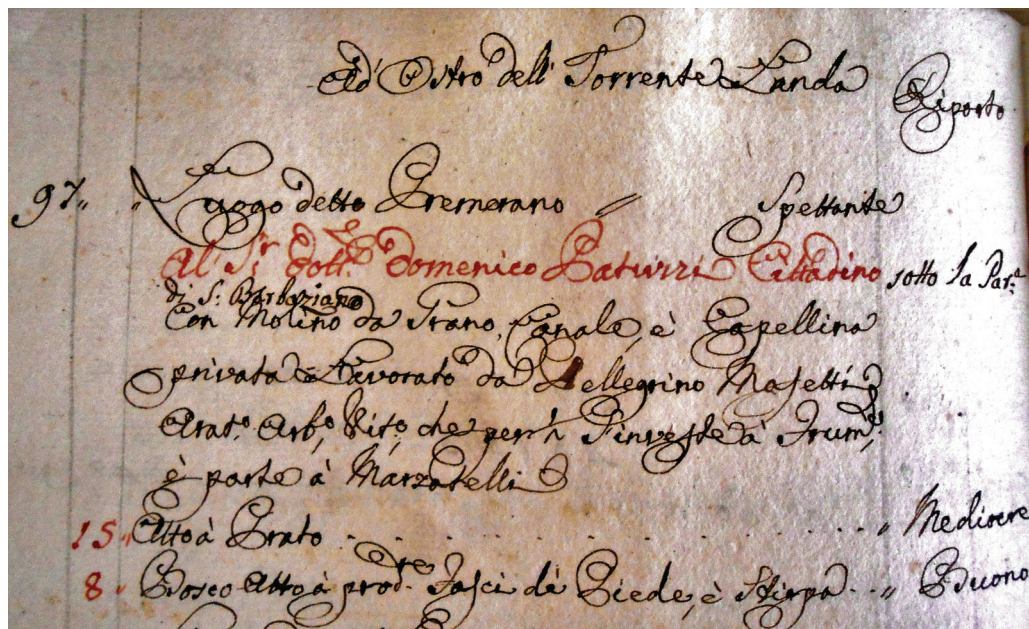 Ad' Ostro dell' Torrente Landa
Riporto
97,, ,, Luogo detto Premerano // Spettante
Al Sr. Dottr. Domenico Paturzzi Cittadino sotto la Par.a
di S: Barbaziano
Con Molino da Grano, Canale, è Capellina
privata Lavorato da Pellegrino Masetti
Arat.o Arb.o Vit.o che per s'investe à Frum.to
è parte à Marzatelli
15 ,, Atto à Prato . . . . . . . . . . . ,, Mediocre
8 ,, Bosco Atto à prod.re Fasci di Piede, è Stirpa . . ,, Buono